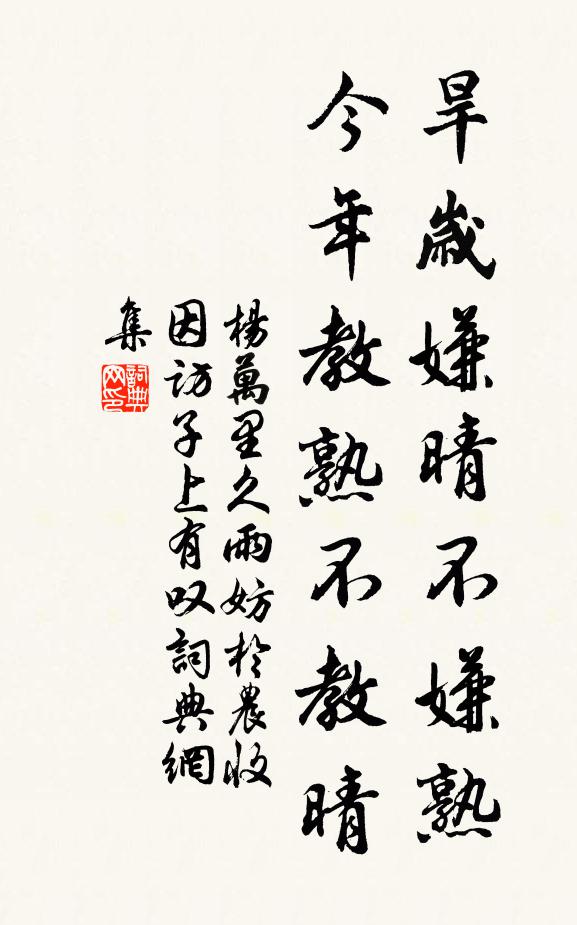 旱歲嫌晴不嫌熟
今年教熟不教晴
楊萬里久雨妨於農收
因訪子上有叹詞典網
集
詞典網印